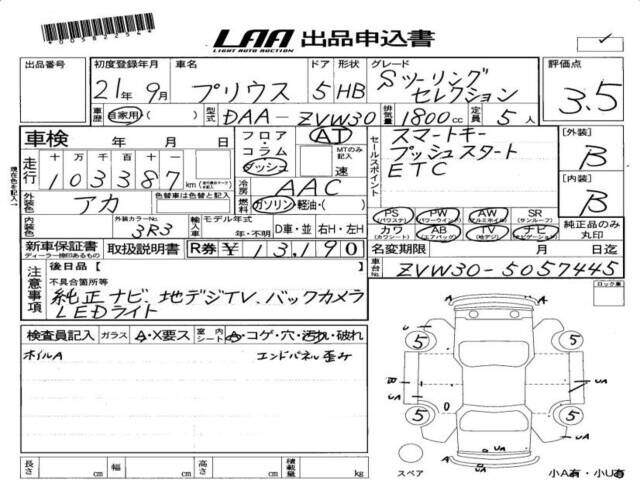 LAA 出品申込書
LIGHT AUTO AUCTION
出品番号 初度登録年月 車名 ドア 形状 グレード 評価点
21年 9月 プリウス 5 HB Sツーリング セレクション 3.5
車歴 自家用( ) 型式 DAA-ZVW30 排気量 1800cc 定員 5人
車検 年 月 日 フロア・コラム・ダッシュ AT MTのみ記入 速 セールスポイント スマートキー
プッシュスタート
ETC
[外装] B
[内装] B
走行 十 万 千 百 十 一
103387 km
冷房 AAC
外装色 アカ 色替車は色替と記入 燃料 ガソリン・軽油・( )
内装色 外装カラーNo. 3R3 輸入車 モデル年式 年・不明 D車・並 右H・左H
PS (パワステ) PW (パワーウインド) AW (アルミホイル) SR (サンルーフ) 純正品のみ丸印
カワ (カワシート) AB (エアバッグ) TV (地デジ) ナビ (ナビゲーション)
新車保証書 ディーラー捺印あるもの 取扱説明書 R券 ¥13,190 名変期限 月 日迄
注意事項 後日品【 】 車台No. ZVW30-5057445
不具合箇所等 ロック車
純正ナビ、地デジTV、バックカメラ
LEDライト
検査員記入 ガラス A・X要ス 室内シート コゲ・穴・汚れ・破れ
ホイルA エンドパネル歪み
5 5
B UA UA
5 5
UA UA
UA
スペア 小A有・小U有
長さ cm 幅 cm 高さ cm 積載量 kg